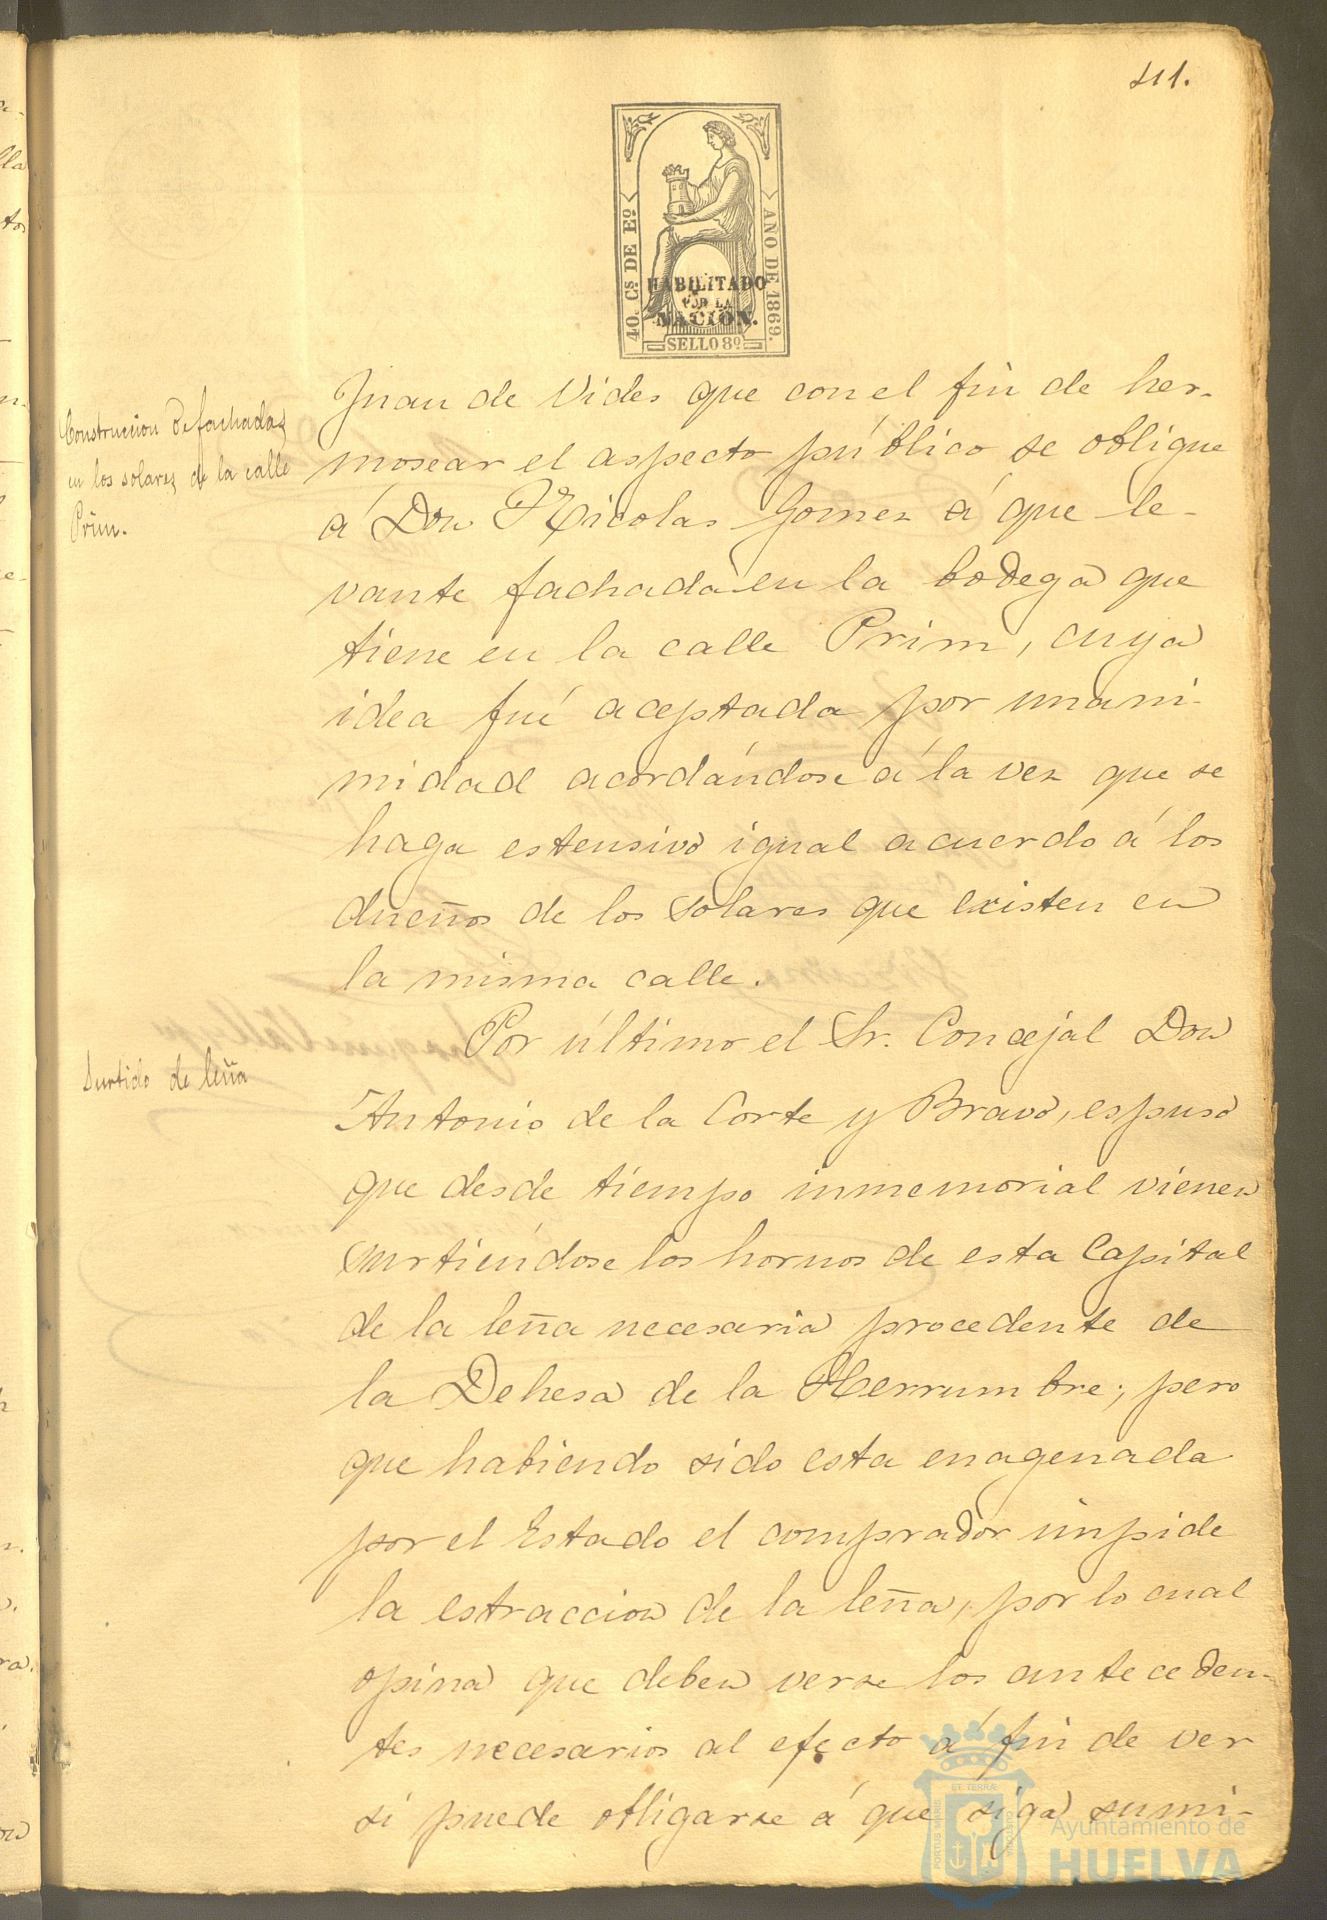 111.
40. Cs DE Eo
AÑO DE 1869.
HABILITADO
POR LA
NACION.
SELLO 8º
Construccion de fachadas
en los solares de la calle
Prim.
Juan de Vides que con el fin de her-
mosear el aspecto público se obligue
á Don Nicolas Gomez á que le-
vante fachada en la bodega que
tiene en la calle Prim, cuya
idea fué aceptada por unani-
midad acordándose á la vez que se
haga estensivo igual acuerdo á los
dueños de los solares que existen en
la misma calle.
Surtido de leña
Por último el Sr. Concejal Don
Antonio de la Corte y Bravo, espuso
que desde tiempo inmemorial vienen
surtiéndose los hornos de esta Capital
de la leña necesaria procedente de
la Dehesa de la Herrumbre; pero
que habiendo sido esta enagenada
por el Estado el comprador impide
la estraccion de la leña, por lo cual
opina que deben verse los anteceden-
tes necesarios al efecto á fin de ver
si puede obligarse á que siga sumi-
PORTUS MARIS
ET TERRÆ
CUSTODIA
Ayuntamiento de
HUELVA